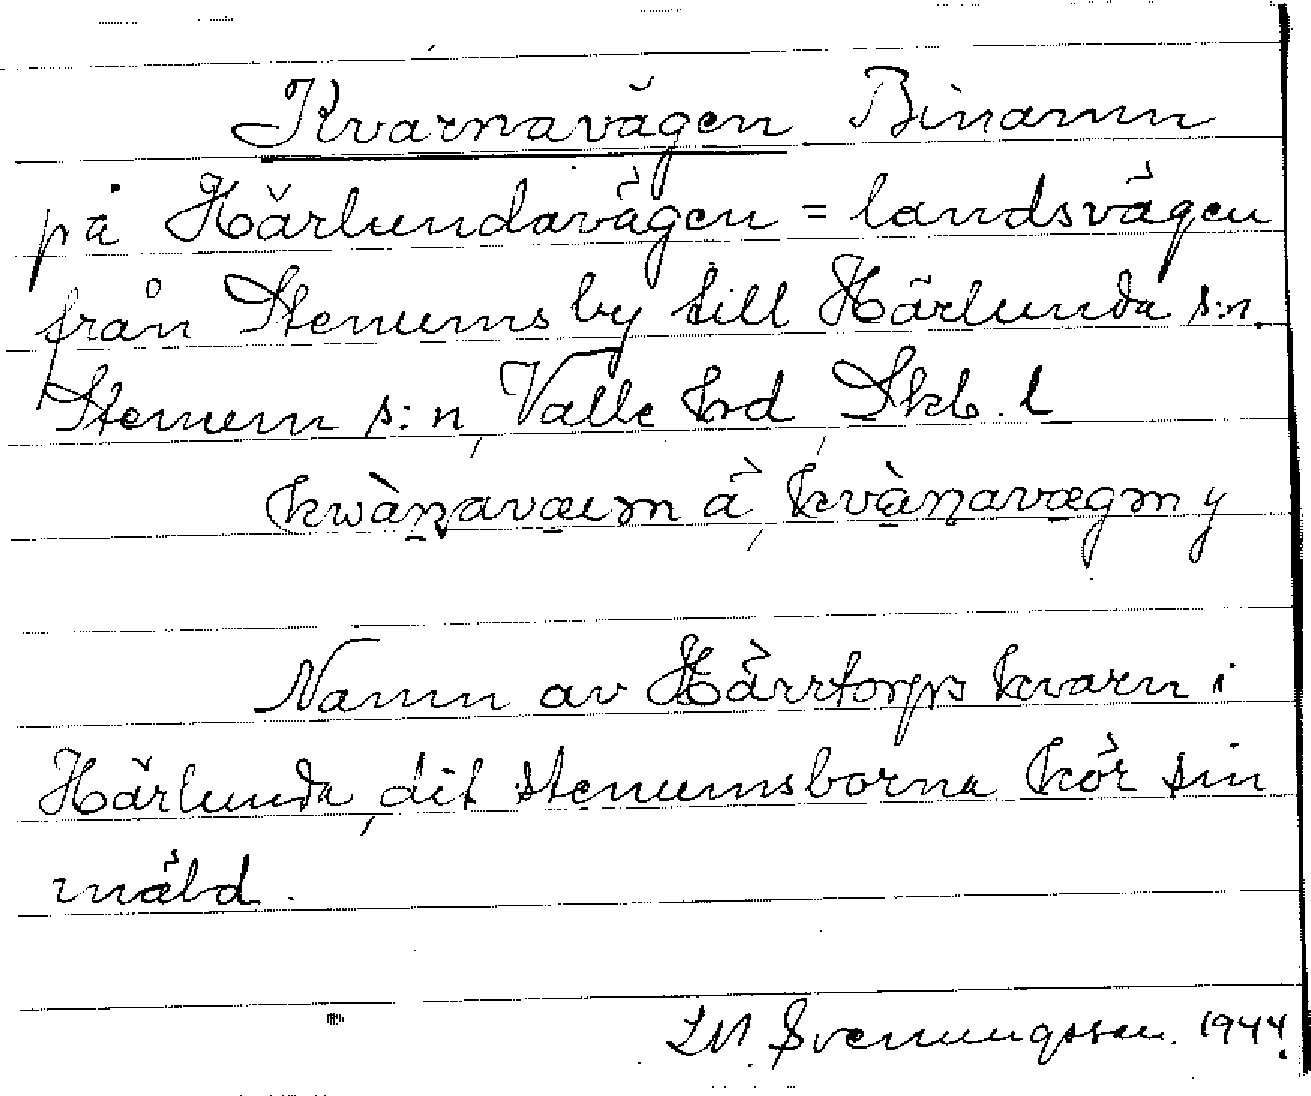 Kvarnavägen Binamn
på Härlundavägen = landsvägen
från Stenums by till Härlunda s:n.
Stenum s:n, Valle hrd, Skb. l
kwàṇavæıən ä, kvàṇavægən y
Namn av Härrtorps kvarn i
Härlunda, dit stenumsborna kör sin
mäld.
LM. Svenungsson. 1944.